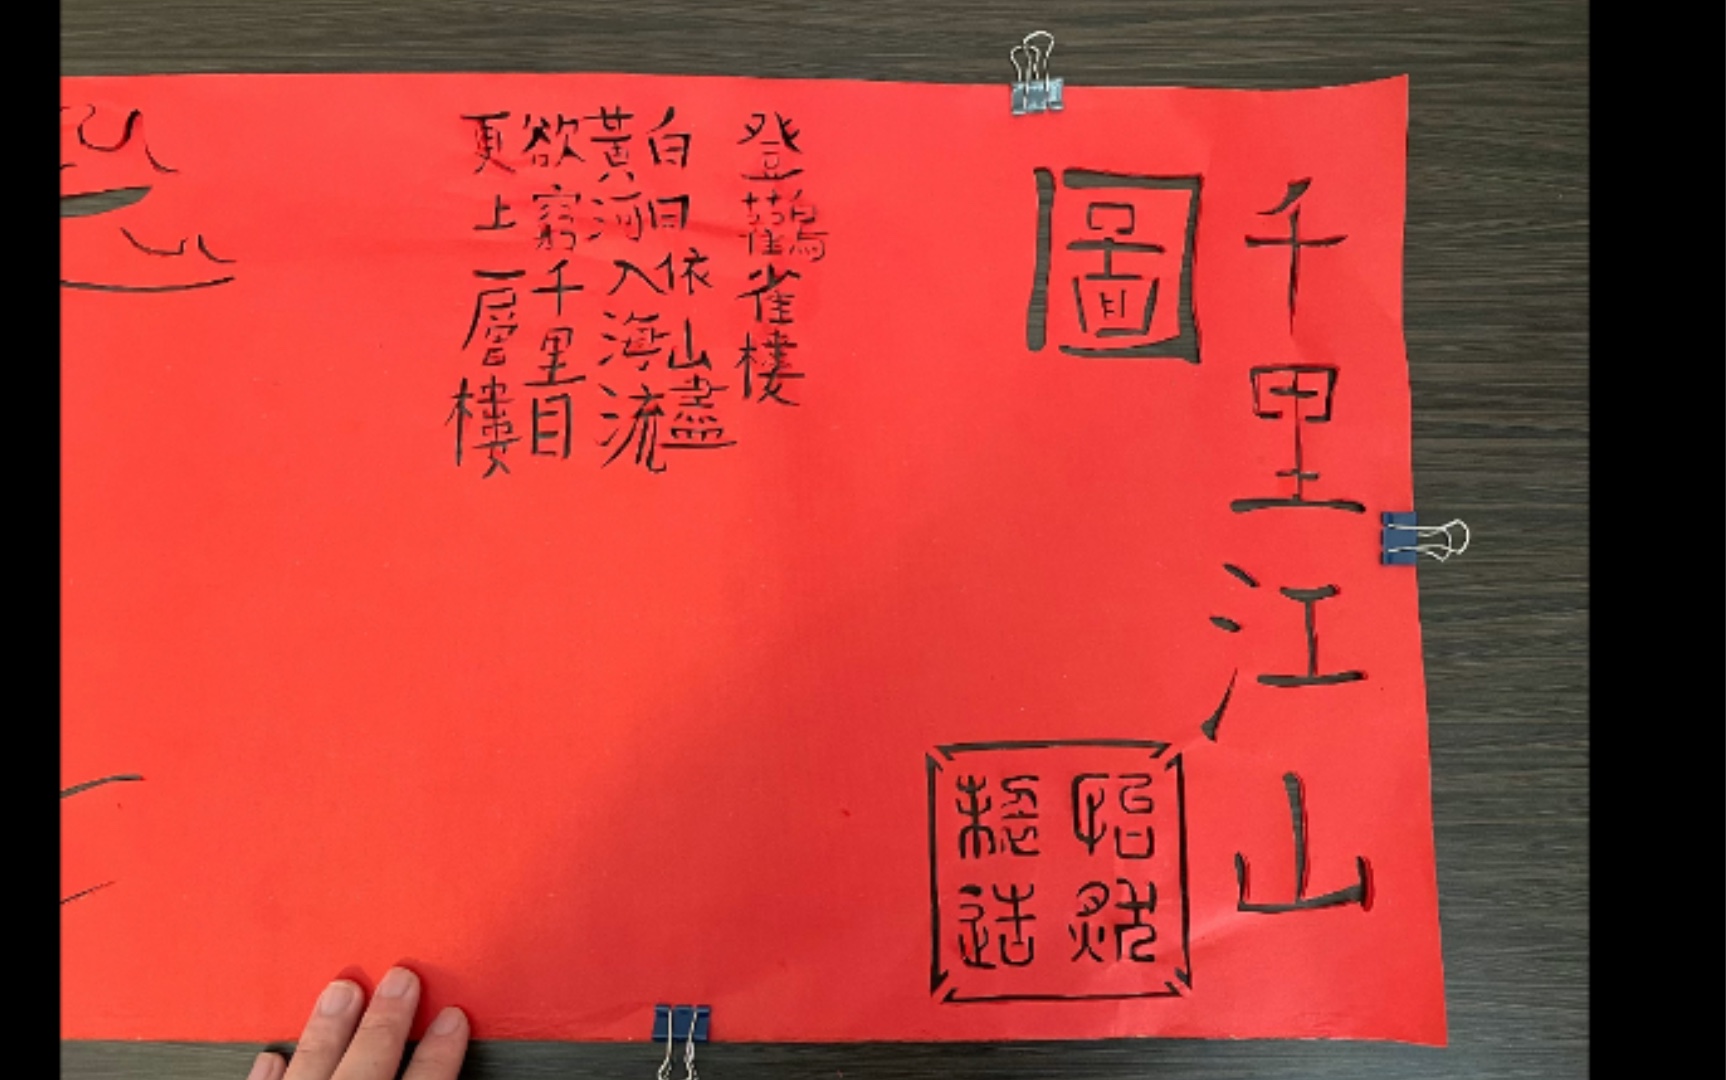 千里江山
圖
登鸛雀樓
白日依山盡
黃河入海流
欲窮千里目
更上一層樓